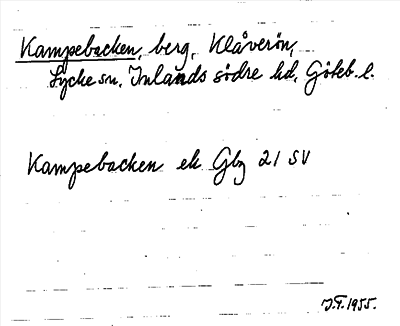 Kampebacken, berg, Klåverön,
Lycke sn, Inlands södre hd, Göteb. l.
Kampebacken ek Gbg 21 SV
J.F. 1955.